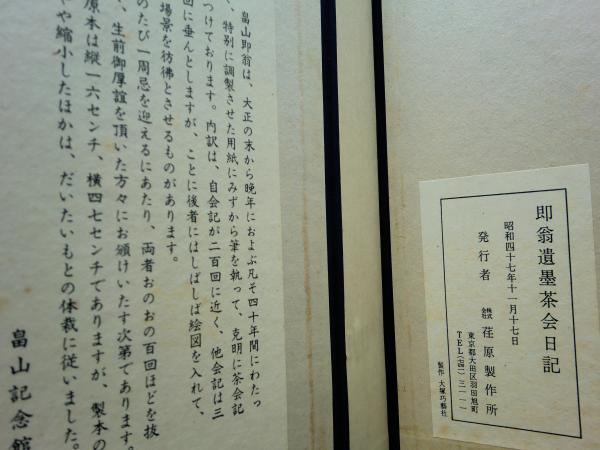 畠山即翁は、大正の末から晩年におよぶ凡そ四十年間にわたっ
、特別に調製させた用紙にみずから筆を執って、克明に茶会記
つけております。内訳は、自会記が二百回に近く、他会記は三
回に垂んとしますが、ことに後者にはしばしば絵図を入れて、
場景を彷彿とさせるものがあります。
のたび一周忌を迎えるにあたり、両者おのおの百回ほどを抜
、生前御厚誼を頂いた方々にお頒けいたす次第であります。
原本は縦一六センチ、横四七センチでありますが、製本の
や縮小したほかは、だいたいもとの体裁に従いました。
畠山記念館
即翁遺墨茶会日記
昭和四十七年十一月十七日
発行者 株式会社 荏原製作所
東京都大田区羽田旭町
TEL(741)三一一一
製作 大塚巧藝社